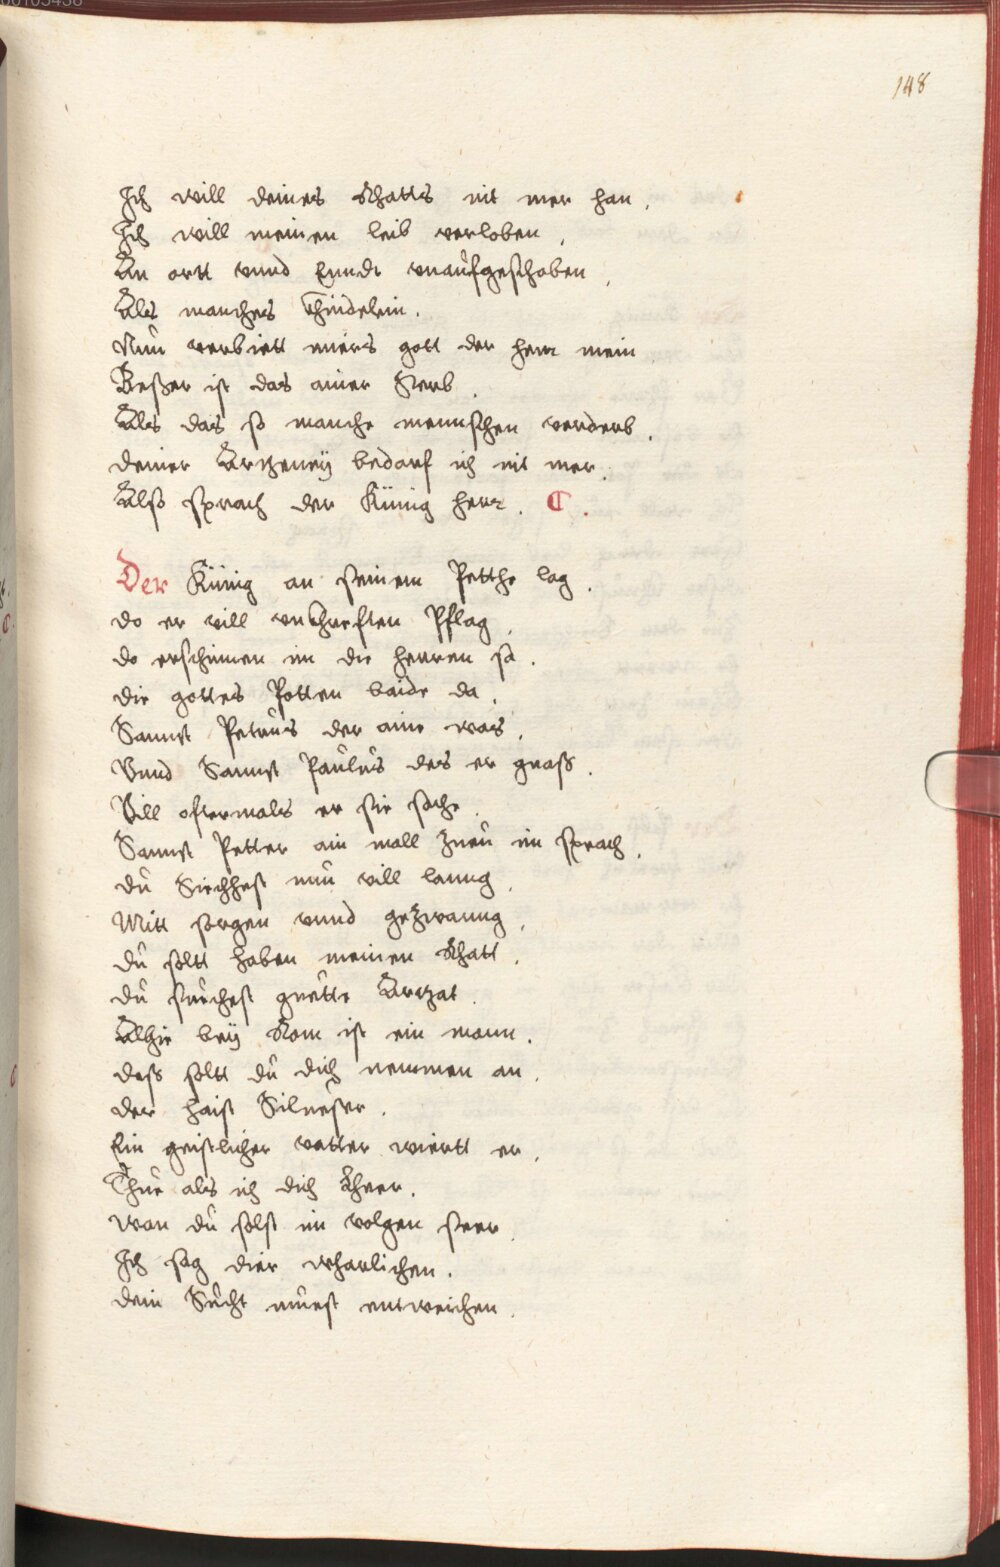 148
Ich will deines Rhatts nit mer han.
Ich will meinen leib verloben,
An ortt vnnd Ennde vnaufgeschoben,
Als manches Khindelein.
Nun verbiett miers gott der herr mein
Besser ist das ainer Sterb.
Als das so manche mennschen verderb.
deiner Artzeney bedarf ich nit mer.
Also sprach der Künig herr. C.
Der Künig an seinem Petthe lag.
do er vill vnkhreften Pflag,
do erschinnen im die herren sa.
die gottes Potten baide da.
Sannct Petrus der aine was,
Vnnd Sannct Paulus des er genass.
Vill oftermals er sie sache.
Sannct Petter ain mall zueu im sprach,
du Siechhest nun vill lanng,
Mitt sorgen vnnd gezwanng,
du soltt haben meinen Rhatt,
du suechest guette Artzat.
Alhie bey Rom ist ein mann.
dess soltt du dich nemmen an,
der haist Siluester.
Ein geistlicher vatter wiertt er,
Thue als ich dich Kheer.
wan du solst im volgen seer.
Ich sag dier wharlichen.
dein Sucht muest entweichen.